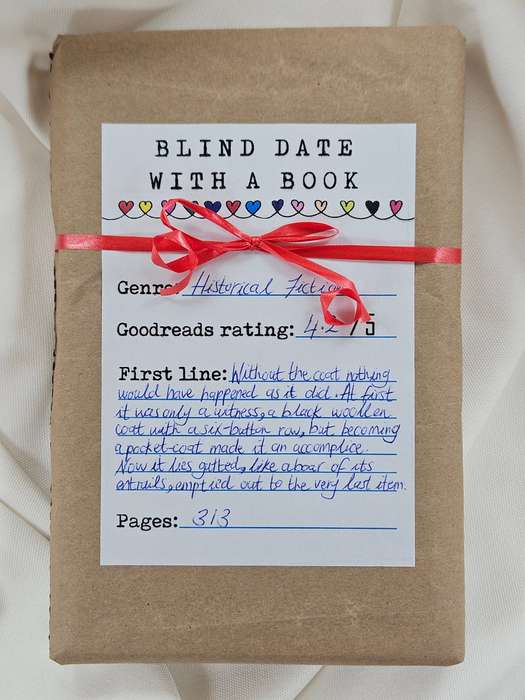 BLIND DATE
WITH A BOOK
Genre: Historical Fiction
Goodreads rating: 4.2 / 5
First line: Without the coat nothing
would have happened as it did. At first
it was only a witness, a black woollen
coat with a six-button row, but becoming
a pocket-coat made it an accomplice.
Now it lies gutted, like a boar of its
entrails, emptied out to the very last item.
Pages: 313